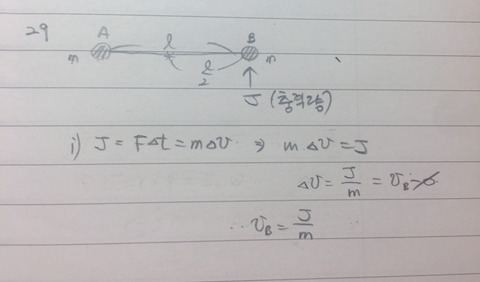 29
A l B
m l/2 m
J (충격량)
i) J = FΔt = mΔv ⇒ mΔv = J
Δv = J/m = v_B - 0
∴ v_B = J/m